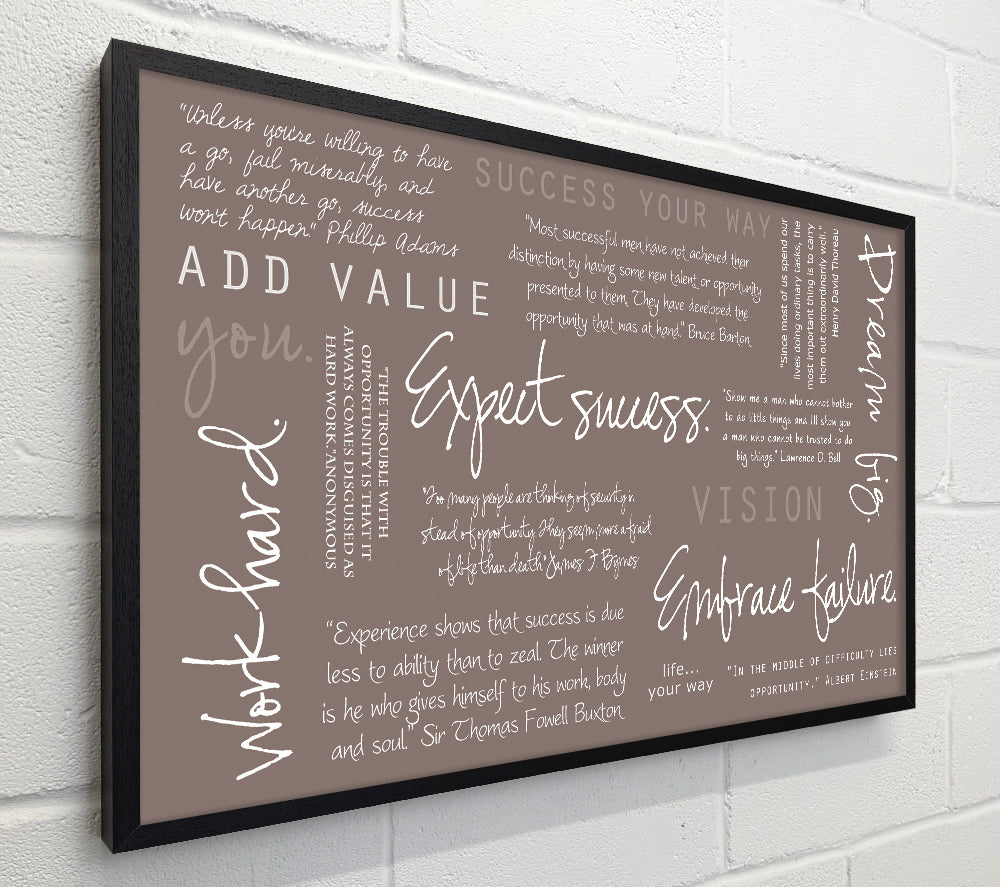 "Unless you're willing to have
a go, fail miserably, and
have another go, success
won't happen." Phillip Adams
SUCCESS YOUR WAY
ADD VALUE
"Most successful men have not achieved their
distinction by having some new talent or opportunity
presented to them. They have developed the
opportunity that was at hand." Bruce Barton
"Since most of us spend our
lives doing ordinary tasks, the
most important thing is to carry
them out extraordinarily well."
Henry David Thoreau
Dream big.
you.
"THE TROUBLE WITH
OPPORTUNITY IS THAT IT
ALWAYS COMES DISGUISED AS
HARD WORK."ANONYMOUS
Expect success.
"Show me a man who cannot bother
to do little things and I'll show you
a man who cannot be trusted to do
big things." Lawrence D. Bell
Work hard.
"Too many people are thinking of security in
stead of opportunity. They seem more afraid
of life than death" James F. Byrnes
VISION
Embrace failure.
"Experience shows that success is due
less to ability than to zeal. The winner
is he who gives himself to his work, body
and soul." Sir Thomas Fowell Buxton
life...
your way
"IN THE MIDDLE OF DIFFICULTY LIES
OPPORTUNITY." ALBERT EINSTEIN